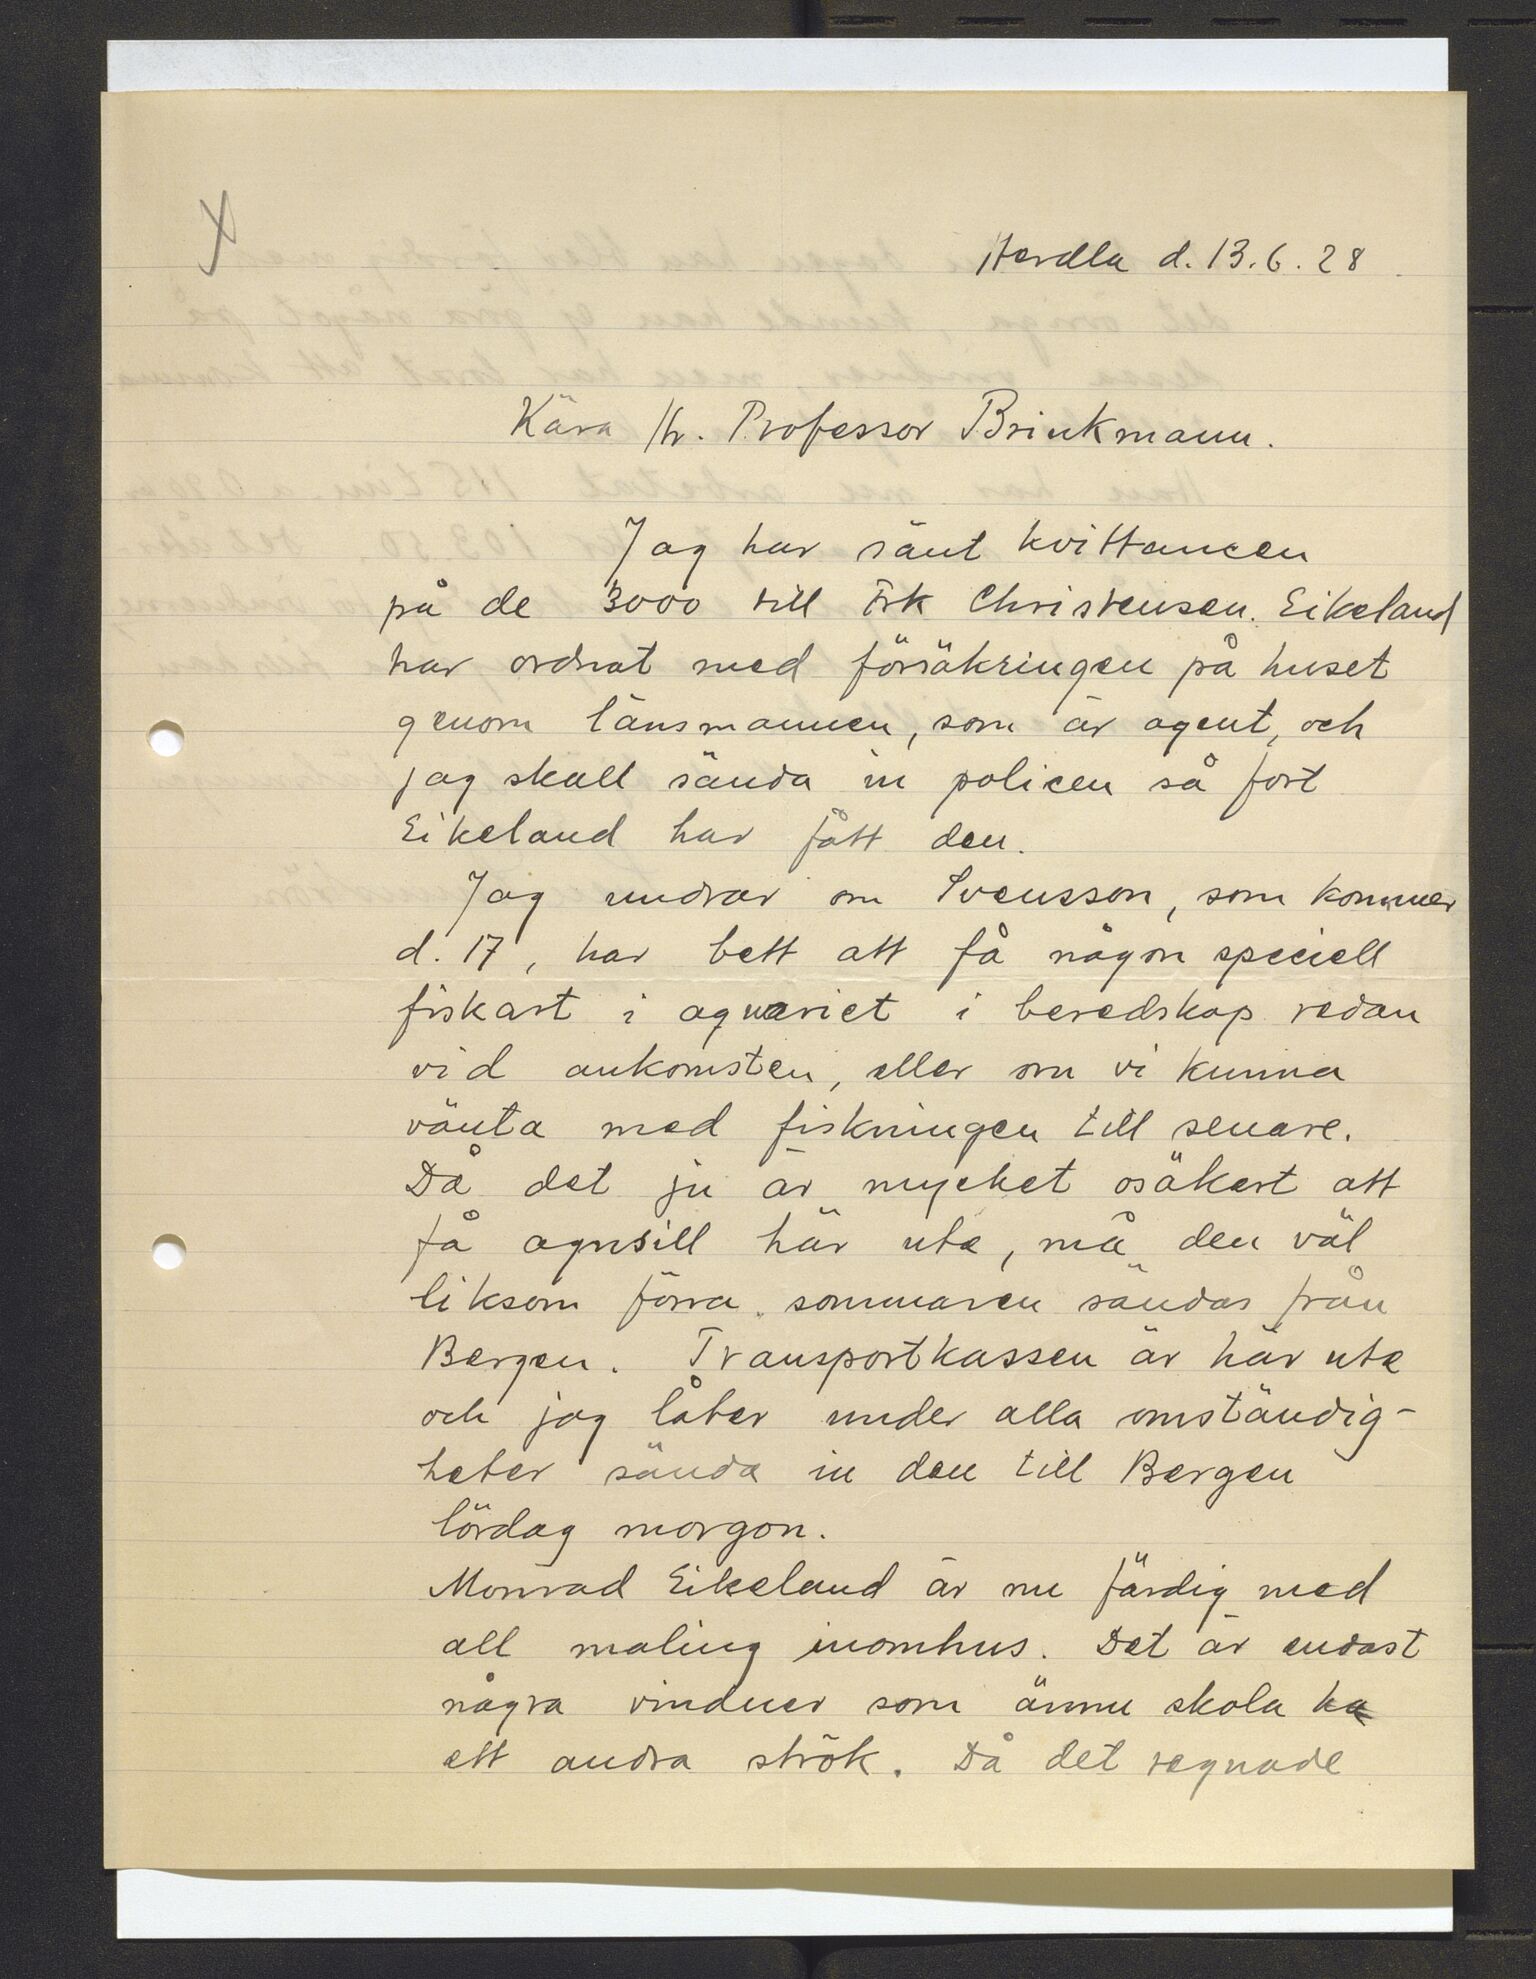 Herdla d. 13.6.28
Kära Hr. Professor Brinkmann.
Jag har sänt kvittancen
på de 3000 till Frk Christensen. Eikeland
har ordnat med försäkringen på huset
genom länsmannen, som är agent, och
jag skall sända in policen så fort
Eikeland har fått den.
Jag undrar om Svensson, som kommer
d. 17, har bett att få någon speciell
fiskart i aquariet i beredskap redan
vid ankomsten, eller om vi kunna
vänta med fiskningen till senare.
Då det ju är mycket osäkert att
få agnsill här ute, må den väl
liksom förra sommaren sändas från
Bergen. Transportkassen är här ute
och jag låter under alla omständig-
heter sända in den till Bergen
lördag morgon.
Monrad Eikeland är nu färdig med
all maling inomhus. Det är endast
några vinduer som ännu skola ha
ett andra strök. Då det regnade